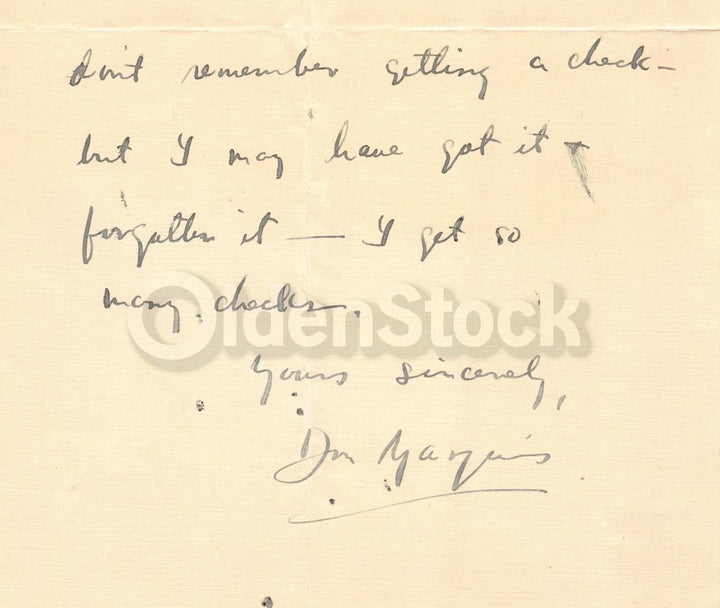 don't remember getting a check —
but I may have got it +
forgotten it — I get so
many checks.
OldenStock
Yours sincerely,
Don Marquis